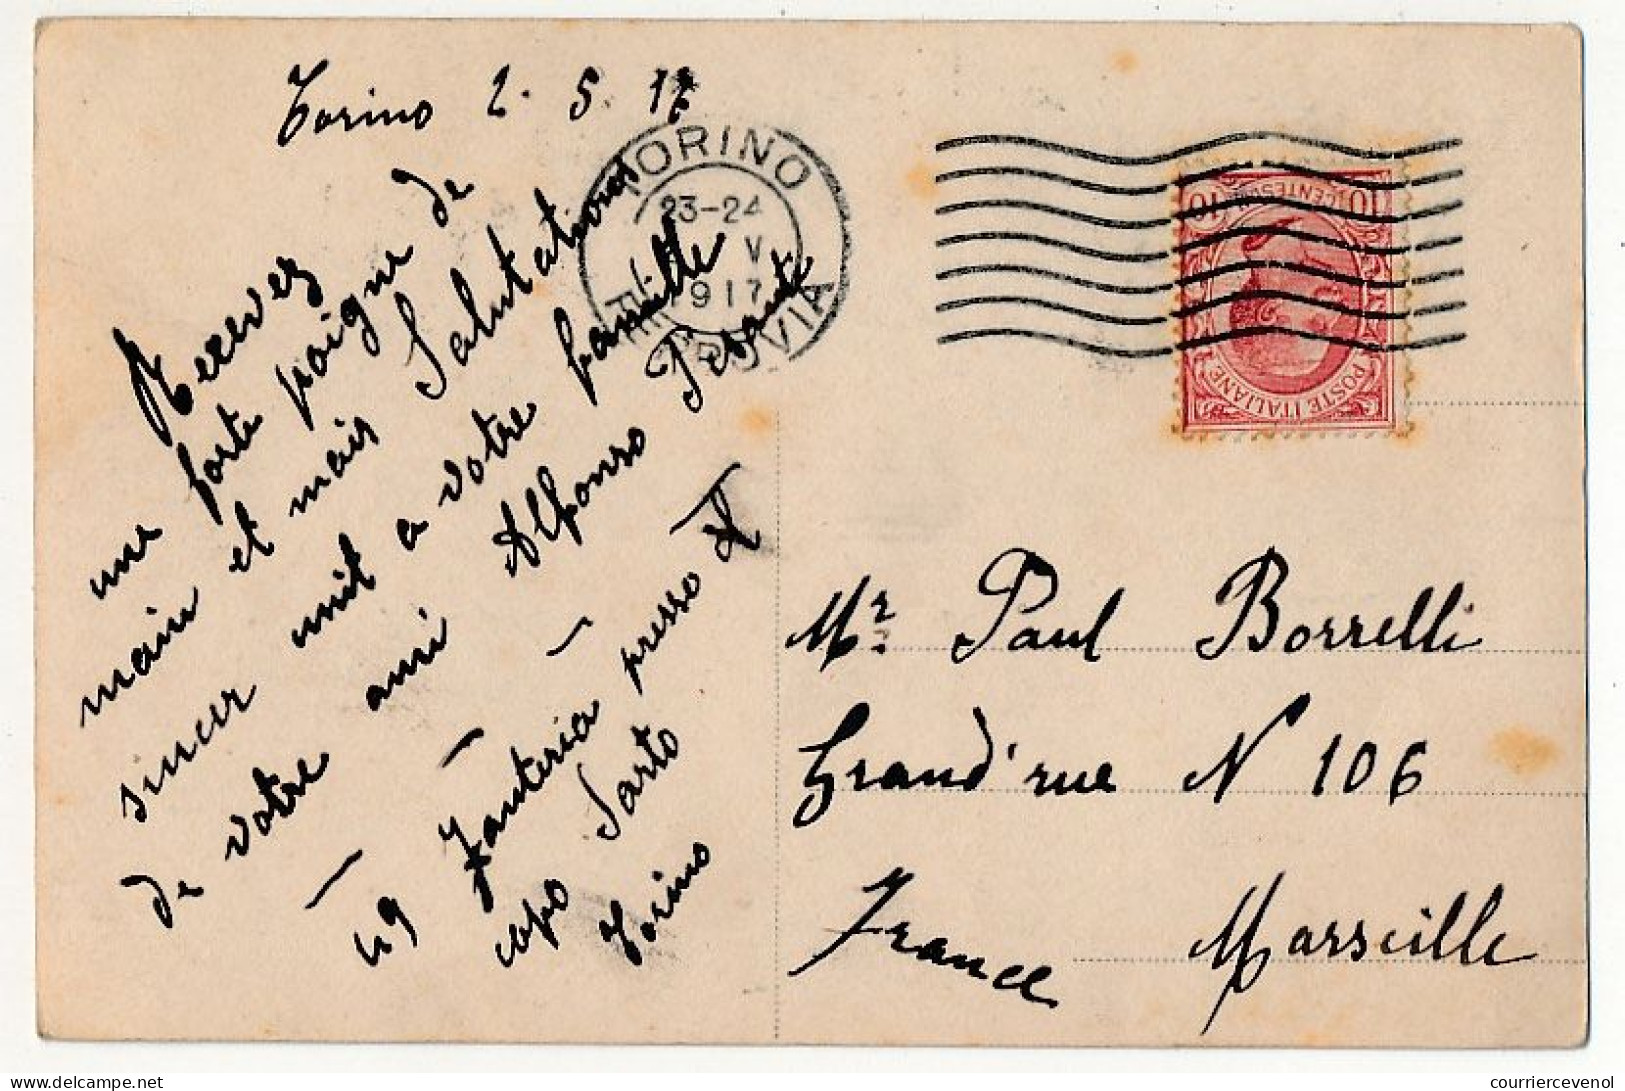 Torino 2. 5. 17
Recevez
une forte poigne de
main et mais Salutations
sincer unit a votre famille
de votre ami Alfonso
49 Fanteria presso
capo Sarto
Torino
TORINO
23-24
V
1917
FERROVIA
10 CENTESIMI 10
POSTE ITALIANE
Mr. Paul Borrelli
Grand'rue N 106
France Marseille
courriercevenol
delcampe.net